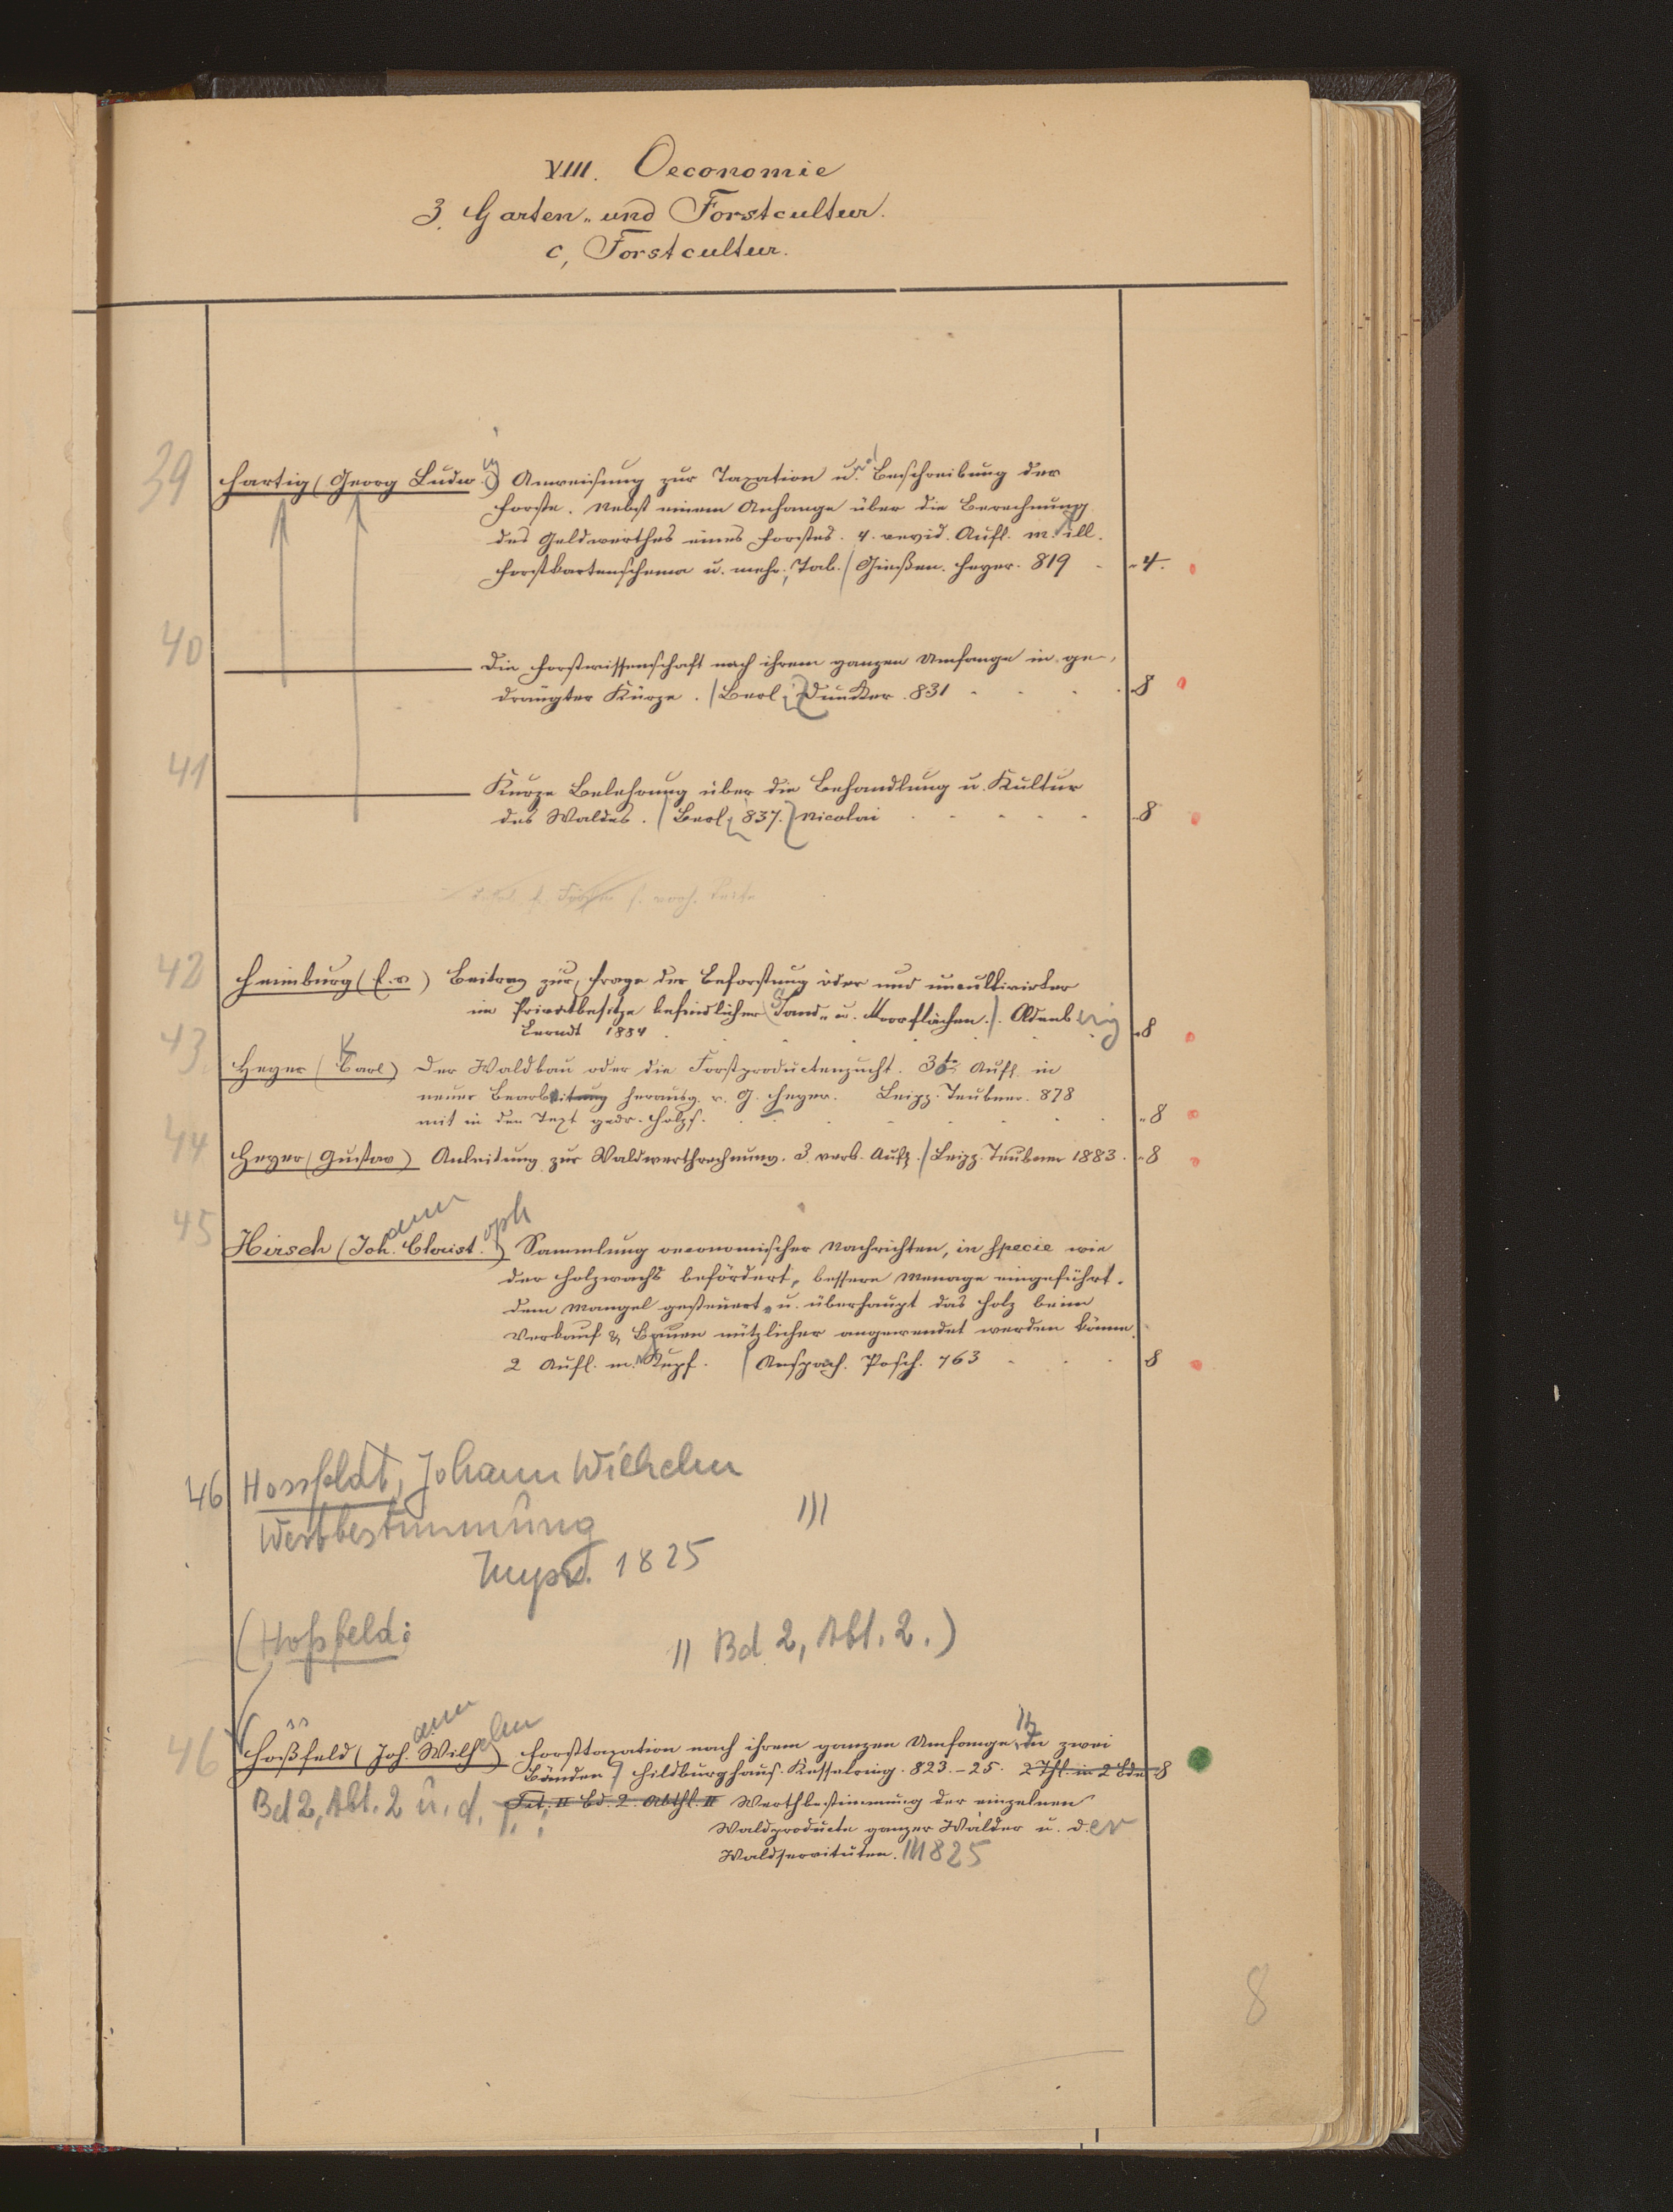 VIII. Oeconomie
3. Garten- und Forstcultur.
c, Forstcultur.
39 Hartig (Georg Ludw.ig) Anweisung zur Taxation u.nd Beschreibung der
Forste. Nebst einem Anhange über die Berechnung
des Geldwerthes eines Forstes. 4. revid. Aufl. m. ill.
Forstkartenschema u. mehr. Tab. / Gießen. Heyer. 819 4.
40 Die Forstwissenschaft nach ihrem ganzen Umfange in ge-
drängter Kürze. / Berl. Duncker. 831 8
41 Kurze Belehrung über die Behandlung u. Kultur
des Waldes. / Berl. 837. Nicolai 8
42 Heimburg (F. v) Beitrag zur Frage der Beforstung öder und uncultivirter
im Privatbesitze befindlicher Sand- u. Moorflächen. Oldenb.urg
Berndt 1884 8
43 Heyer (Karl) Der Waldbau oder die Forstproductenzucht. 3te Aufl. in
neuer Bearbeitung herausg. v. G. Heyer. Leipz. Teubner. 878
mit in den Text gedr. Holzs. 8
44 Heyer (Gustav) Anleitung zur Waldwerthrechnung. 3. verb. Aufl. / Leipz. Teubner 1883. 8
45 Hirsch (Joh.ann Christ.oph) Sammlung oeconomischer Nachrichten, in specie wie
der Holzwachs befördert, bessere Menage eingeführt.
dem Mangel gesteuert u. überhaupt das Holz beim
Verkauf & Bauen nützlicher angewendet werden könne.
2 Aufl. m. Kupf. / Anspach. Posch. 763 8
46 Hossfeldt, Johann Wilhelm
Wertbestimmung )))
1825
(Hoßfeld: )) Bd 2, Abt. 2.)
46 Hoßfeld (Joh.ann Wilh.elm) Forsttaxation nach ihrem ganzen Umfange in zwei
Bänden / Hildburghaus. Kesselring. 823.-25. 2 Thl. in 2 Bde 8
Bd 2, Abt. 2 u. d. T.: Tit. II Bd. 2. Abthl. II Werthbestimmung der einzelnen
Waldproducte ganzer Wälder u. der
Waldservituten. 1825
8